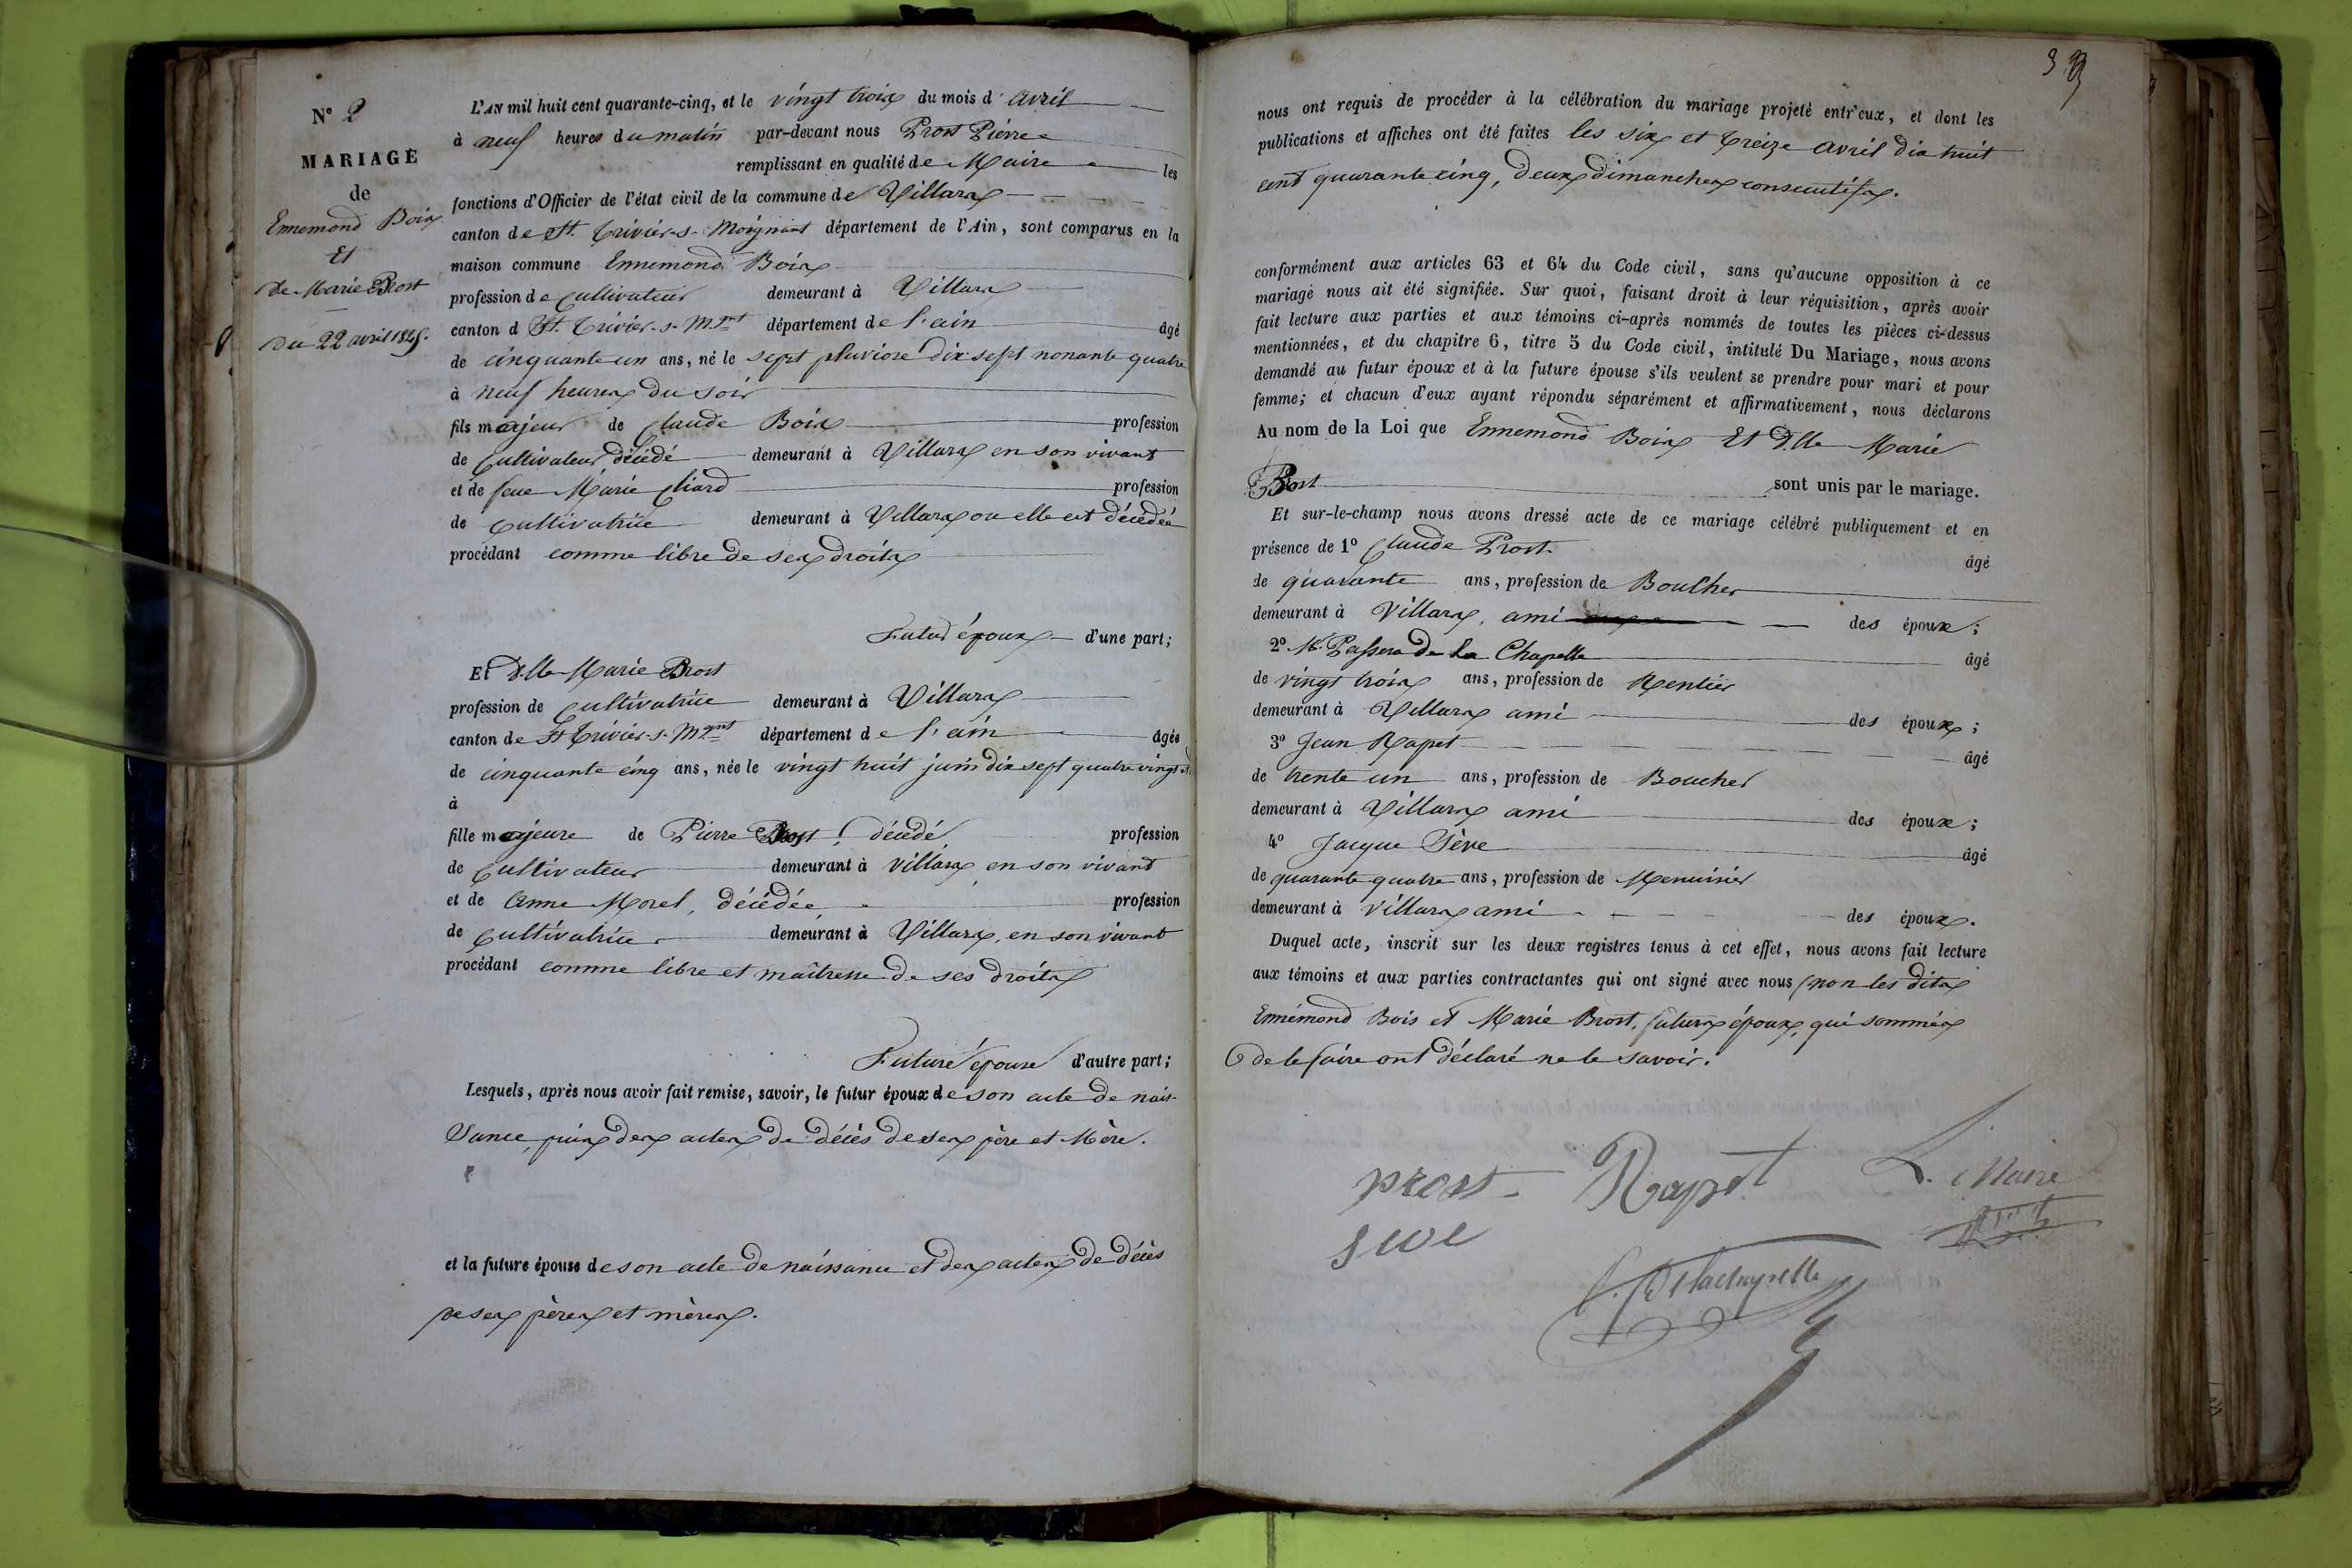 N° 2
MARIAGE
de
Ennemond Bois
Et
De Marie Brost
Du 22 avril 1845.
L'AN mil huit cent quarante-cinq, et le vingt trois du mois d'avril
à neuf heures du matin par-devant nous Prost Pierre
remplissant en qualité de Maire les
fonctions d'Officier de l'état civil de la commune de Villars
canton de St. Trivier-s-Moignant département de l'Ain, sont comparus en la
maison commune Ennemond Bois
profession de Cultivateur demeurant à Villars
canton d St. Trivier-s-Mgnt département de l'ain âgé
de cinquante un ans, né le sept pluviose dix sept nonante quatre
à neuf heures du soir
fils majeur de Claude Bois profession
de Cultivateur, décédé demeurant à Villars en son vivant
et de feue Marie Cliard profession
de Cultivatrice demeurant à Villars ou elle est décédée
procédant comme libre de ses droits
Futur époux d'une part;
Et Dlle Marie Brost
profession de Cultivatrice demeurant à Villars
canton de St Trivier-s-Mgnt département de l'ain âgée
de cinquante cinq ans, née le vingt huit juin dix sept quatre vingt
à
fille majeure de Pierre Brost, décédé profession
de Cultivateur demeurant à Villars en son vivant
et de Anne Morel, décédée profession
de Cultivatrice demeurant à Villars, en son vivant
procédant comme libre et maîtresse de ses droits
Future épouse d'autre part;
Lesquels, après nous avoir fait remise, savoir, le futur époux de son acte de nais-
sance, puis des actes de décès de ses père et Mère.
et la future épouse de son acte de naissance et des actes de décès
de ses pères et mères.
33
nous ont requis de procéder à la célébration du mariage projeté entr'eux, et dont les
publications et affiches ont été faites les six et treize avril dix huit
cent quarante cinq, deux dimanches consecutifs.
conformément aux articles 63 et 64 du Code civil, sans qu'aucune opposition à ce
mariage nous ait été signifiée. Sur quoi, faisant droit à leur réquisition, après avoir
fait lecture aux parties et aux témoins ci-après nommés de toutes les pièces ci-dessus
mentionnées, et du chapitre 6, titre 5 du Code civil, intitulé Du Mariage, nous avons
demandé au futur époux et à la future épouse s'ils veulent se prendre pour mari et pour
femme; et chacun d'eux ayant répondu séparément et affirmativement, nous déclarons
Au nom de la Loi que Ennemond Bois Et Dlle Marie
Brost sont unis par le mariage.
Et sur-le-champ nous avons dressé acte de ce mariage célébré publiquement et en
présence de 1° Claude Prost âgé
de quarante ans, profession de Boucher
demeurant à Villars, ami des époux;
2° Mr. Passera de la Chapelle âgé
de vingt trois ans, profession de Rentier
demeurant à Villars ami des époux;
3° Jean Rapet âgé
de trente un ans, profession de Boucher
demeurant à Villars ami des époux;
4° Jacque Sève âgé
de quarante quatre ans, profession de Menuisier
demeurant à Villars ami des époux.
Duquel acte, inscrit sur les deux registres tenus à cet effet, nous avons fait lecture
aux témoins et aux parties contractantes qui ont signé avec nous, non les dits
Ennémond Bois et Marie Brost, futurs époux, qui sommés
de le faire ont déclaré ne le savoir.
prost Rapet L. Maire
seve
Delachapelle